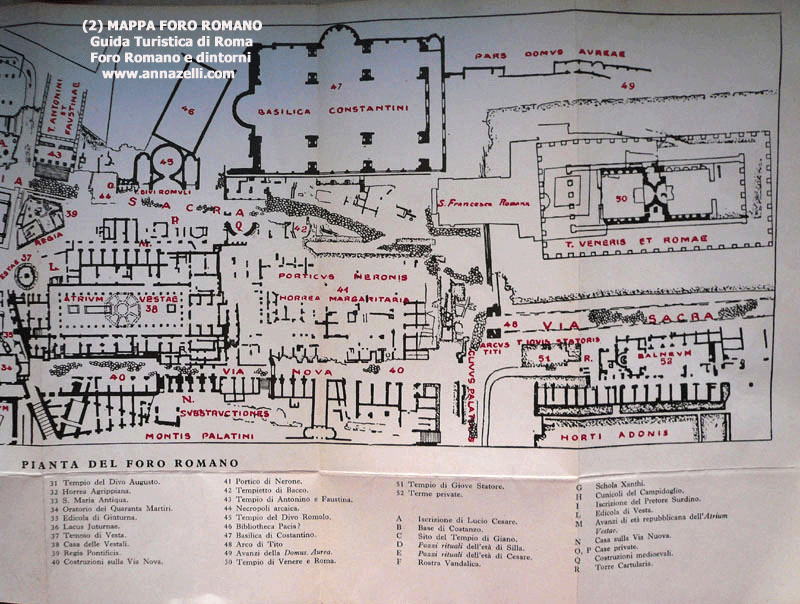 (2) MAPPA FORO ROMANO
Guida Turistica di Roma
Foro Romano e dintorni
www.annazelli.com
PARS DOMVS AVREAE
49
T. ANTONINI
ET
FAUSTINAE
43
46
47
BASILICA CONSTANTINI
45
T. DIVI ROMULI
44
Q
A
A
39
REGIA
S A C R A
R
Q
42
S. Francesca Romana
50
T. VENERIS ET ROMAE
VESTAE 37
L
ATRIVM VESTAE
38
PORTICVS NERONIS
41
HORREA MARGARITARIA
35
34
48
ARCVS
TITI
VIA SACRA
T. IOVIS STATORIS
51
R.
BALNEVM
52
40
VIA NOVA
40
CLIVVS PALATINVS
N.
SVBSTRVCTIONES
MONTIS PALATINI
HORTI ADONIS
PIANTA DEL FORO ROMANO
31 Tempio del Divo Augusto.
32 Horrea Agrippiana.
33 S. Maria Antiqua.
34 Oratorio dei Quaranta Martiri.
35 Edicola di Giuturna.
36 Lacus Juturnae.
37 Tempio di Vesta.
38 Casa delle Vestali.
39 Regia Pontificis.
40 Costruzioni sulla Via Nova.
41 Portico di Nerone.
42 Tempietto di Bacco.
43 Tempio di Antonino e Faustina.
44 Necropoli arcaica.
45 Tempio del Divo Romolo.
46 Bibliotheca Pacis?
47 Basilica di Costantino.
48 Arco di Tito
49 Avanzi della Domus Aurea.
50 Tempio di Venere e Roma.
51 Tempio di Giove Statore.
52 Terme private.
A Iscrizione di Lucio Cesare.
B Base di Costanzo.
C Sito del Tempio di Giano.
D Pozzi rituali dell'età di Silla.
E Pozzi rituali dell'età di Cesare.
F Rostra Vandalica.
G Schola Xanthi.
H Cunicoli del Campidoglio.
I Iscrizione del Pretore Surdino.
L Edicola di Vesta.
M Avanzi di età repubblicana dell'Atrium
Vestae.
N Casa sulla Via Nuova.
O, P Case private.
Q Costruzioni medioevali.
R Torre Cartularis.